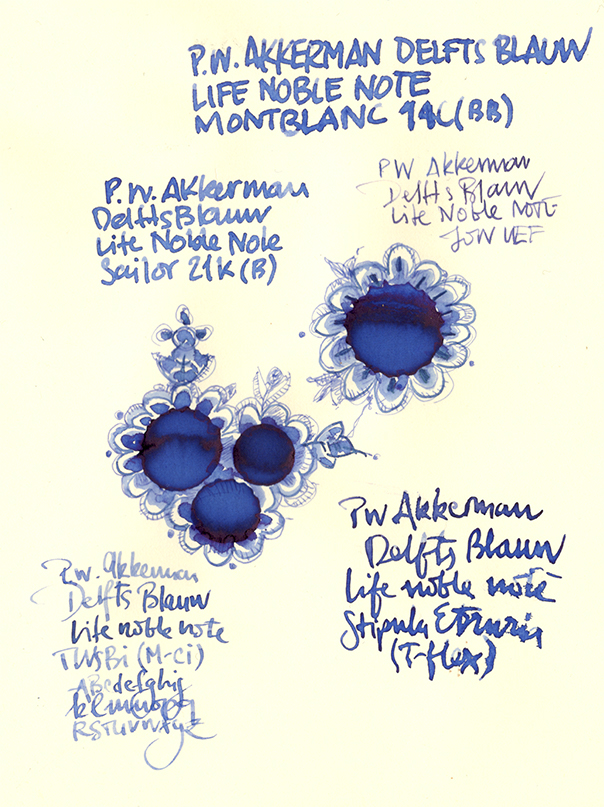 P.W. AKKERMAN DELFTS BLAUW
LIFE NOBLE NOTE
MONTBLANC 14C (BB)
PW Akkerman
Delfts Blauw
Life Noble Note
JOW UEF
P.W. Akkerman
Delfts Blauw
Life Noble Note
Sailor 21K (B)
PW Akkerman
Delfts Blauw
Life noble note
Stipula Etruria
(T-flex)
P.W. Akkerman
Delfts Blauw
Life noble note
TWSBi (M-Ci)
ABcdefghij
klmnopq
RSTUVWXYZ